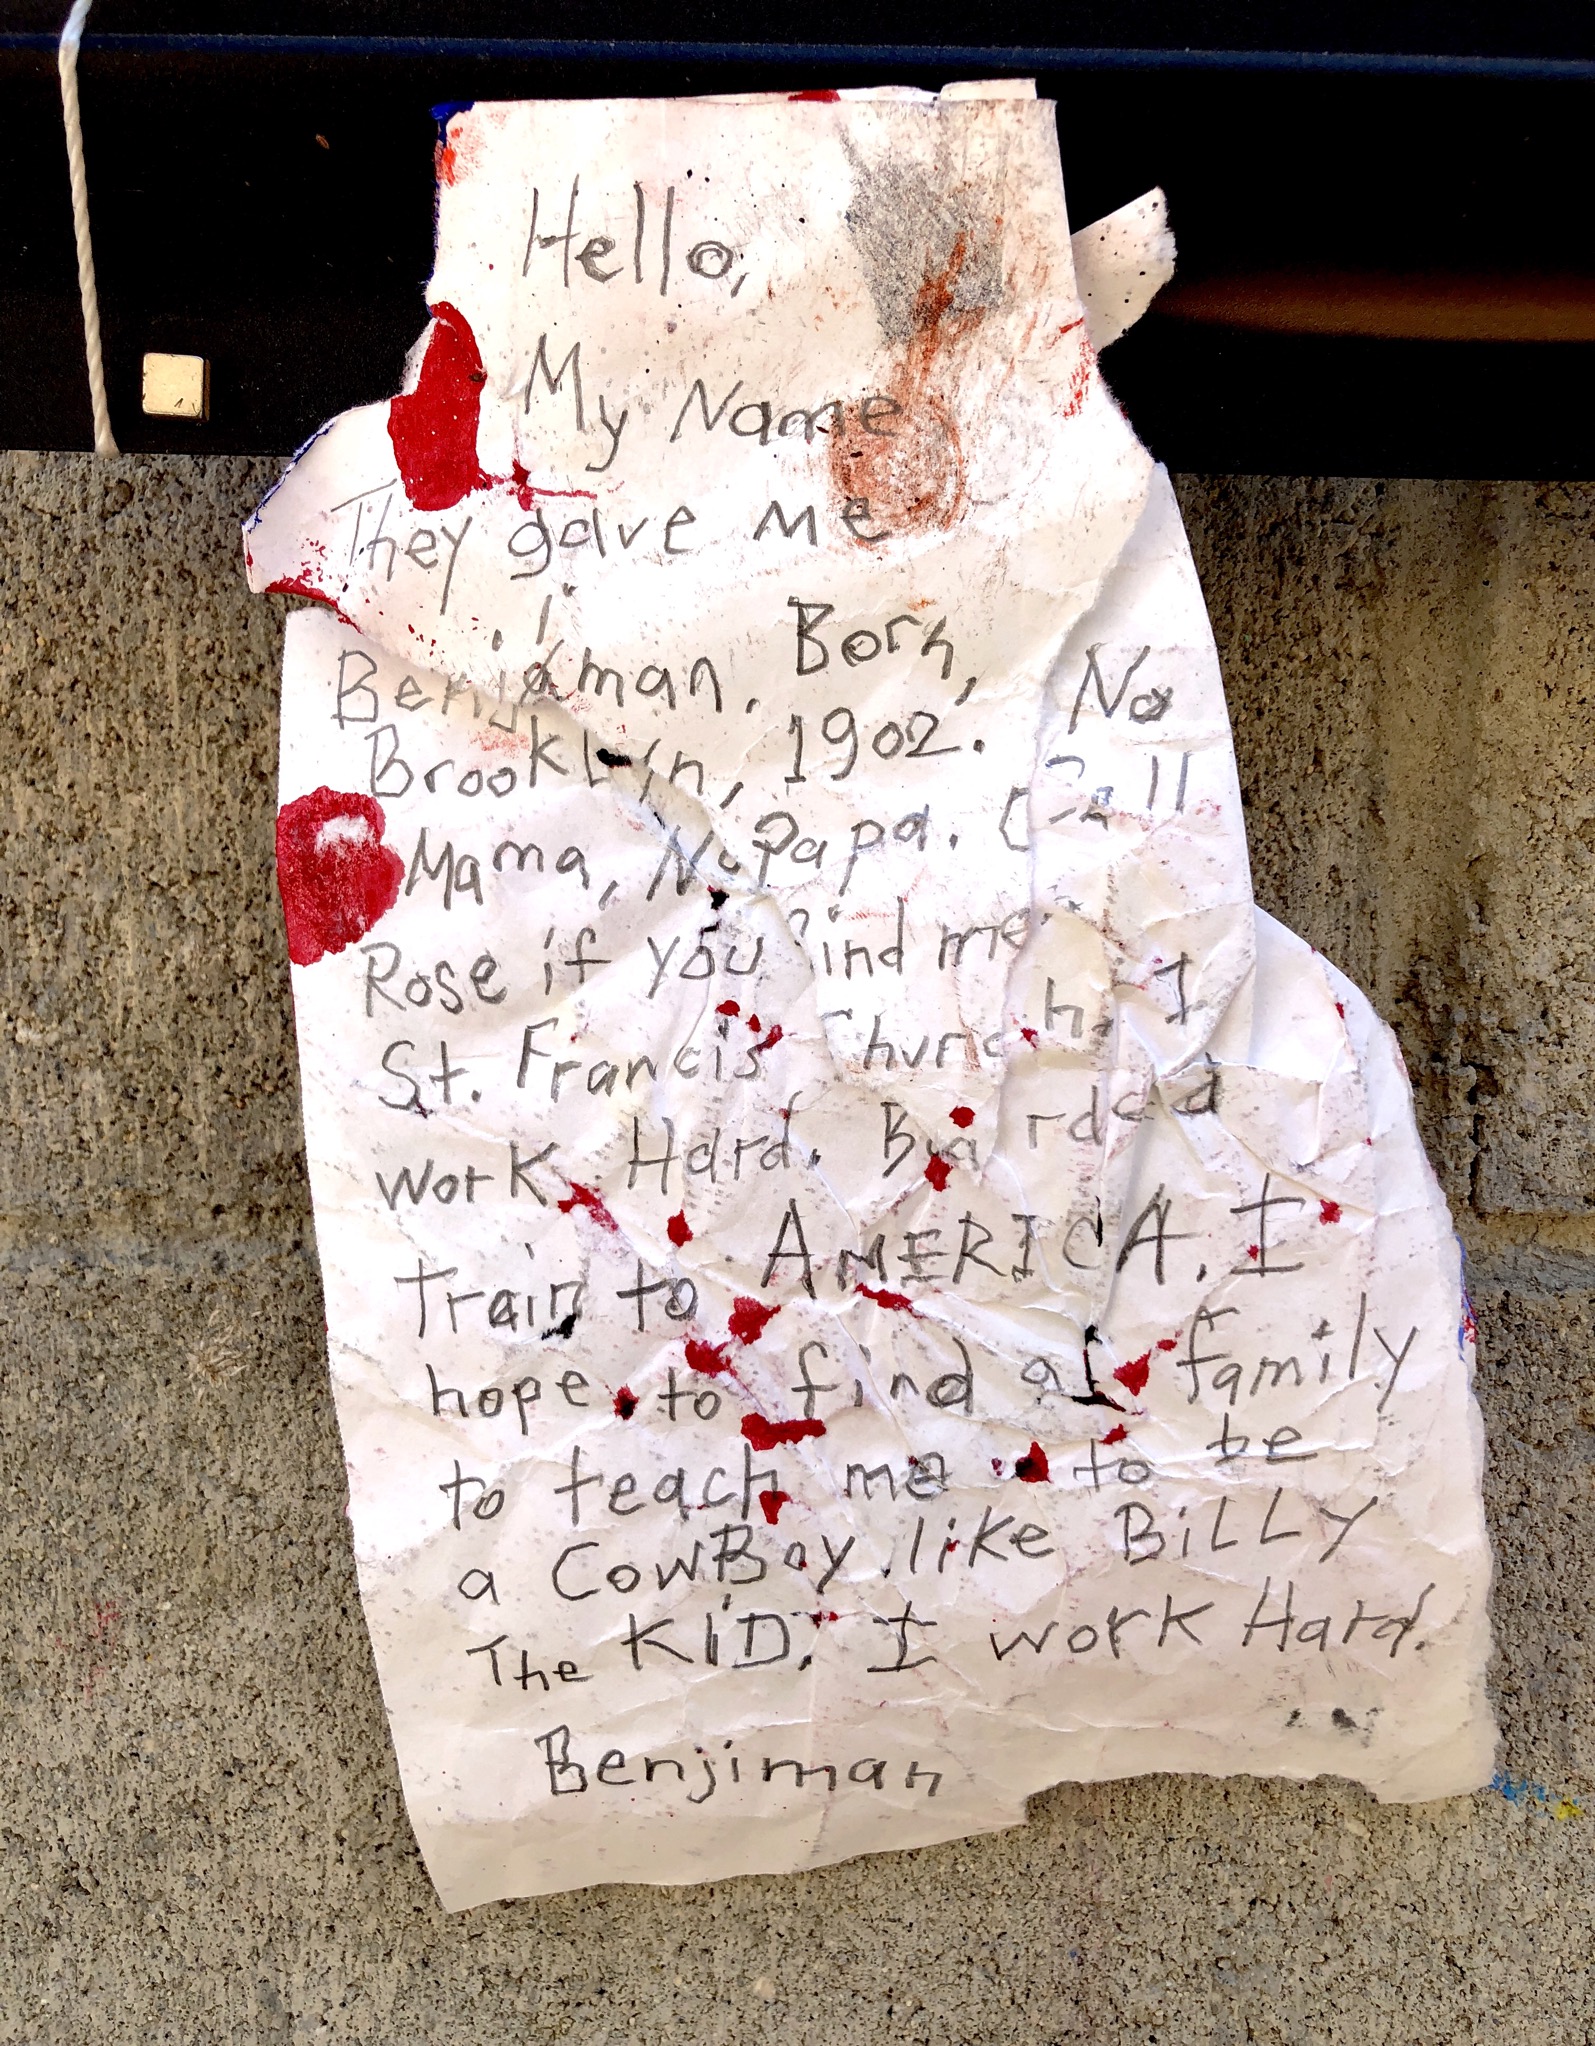 Hello,
My Name
They gave me
Benjiman. Born,
Brooklyn, 1902. No
Mama, No Papa. Call
Rose if you find me.
St. Francis Church. I
work Hard. Boarded
Train to AMERICA. I
hope to find a family
to teach me to be
a CowBoy like BiLLy
The KiD. I work Hard.
Benjiman